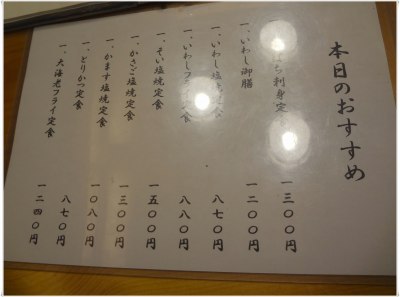 本日のおすすめ
ち刺身定食 一三〇〇円
一、いわし御膳 一二〇〇円
一、いわし塩焼定食 八七〇円
一、いわしフライ定食 八八〇円
一、そい塩焼定食 一五〇〇円
一、かさご塩焼定食 一三〇〇円
一、かます塩焼定食 一〇八〇円
一、とりかつ定食 八七〇円
一、大海老フライ定食 一二四〇円